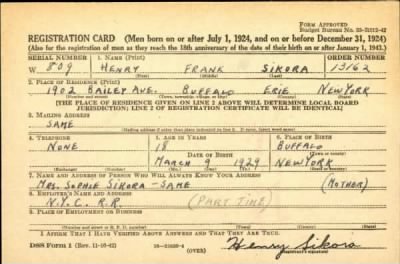 FORM APPROVED
Budget Bureau No. 33-R012-42
REGISTRATION CARD (Men born on or after July 1, 1924, and on or before December 31, 1924)
(Also for the registration of men as they reach the 18th anniversary of the date of their birth on or after January 1, 1943.)
SERIAL NUMBER 1. NAME (Print) ORDER NUMBER
W 809 HENRY FRANK SIKORA 13162
(First) (Middle) (Last)
2. PLACE OF RESIDENCE (Print)
1902 BAILEY AVE. BUFFALO ERIE NEW YORK
(Number and street) (Town, township, village, or city) (County) (State)
[THE PLACE OF RESIDENCE GIVEN ON LINE 2 ABOVE WILL DETERMINE LOCAL BOARD
JURISDICTION; LINE 2 OF REGISTRATION CERTIFICATE WILL BE IDENTICAL]
3. MAILING ADDRESS
SAME
[Mailing address if other than place indicated on line 2. If same, insert word same]
4. TELEPHONE 5. AGE IN YEARS 6. PLACE OF BIRTH
NONE 18 BUFFALO
DATE OF BIRTH (Town or county)
MARCH 9 1929 NEW YORK
(Exchange) (Number) (Mo.) (Day) (Yr.) (State or country)
7. NAME AND ADDRESS OF PERSON WHO WILL ALWAYS KNOW YOUR ADDRESS
MRS. SOPHIE SIKORA - SAME (MOTHER)
8. EMPLOYER'S NAME AND ADDRESS
N.Y.C. R.R. (PART TIME)
9. PLACE OF EMPLOYMENT OR BUSINESS
(Number and street or R. F. D. number) (Town) (County) (State)
I AFFIRM THAT I HAVE VERIFIED ABOVE ANSWERS AND THAT THEY ARE TRUE.
DSS Form 1 (Rev. 11-16-42) (OVER) Henry Sikora
(Registrant's signature)